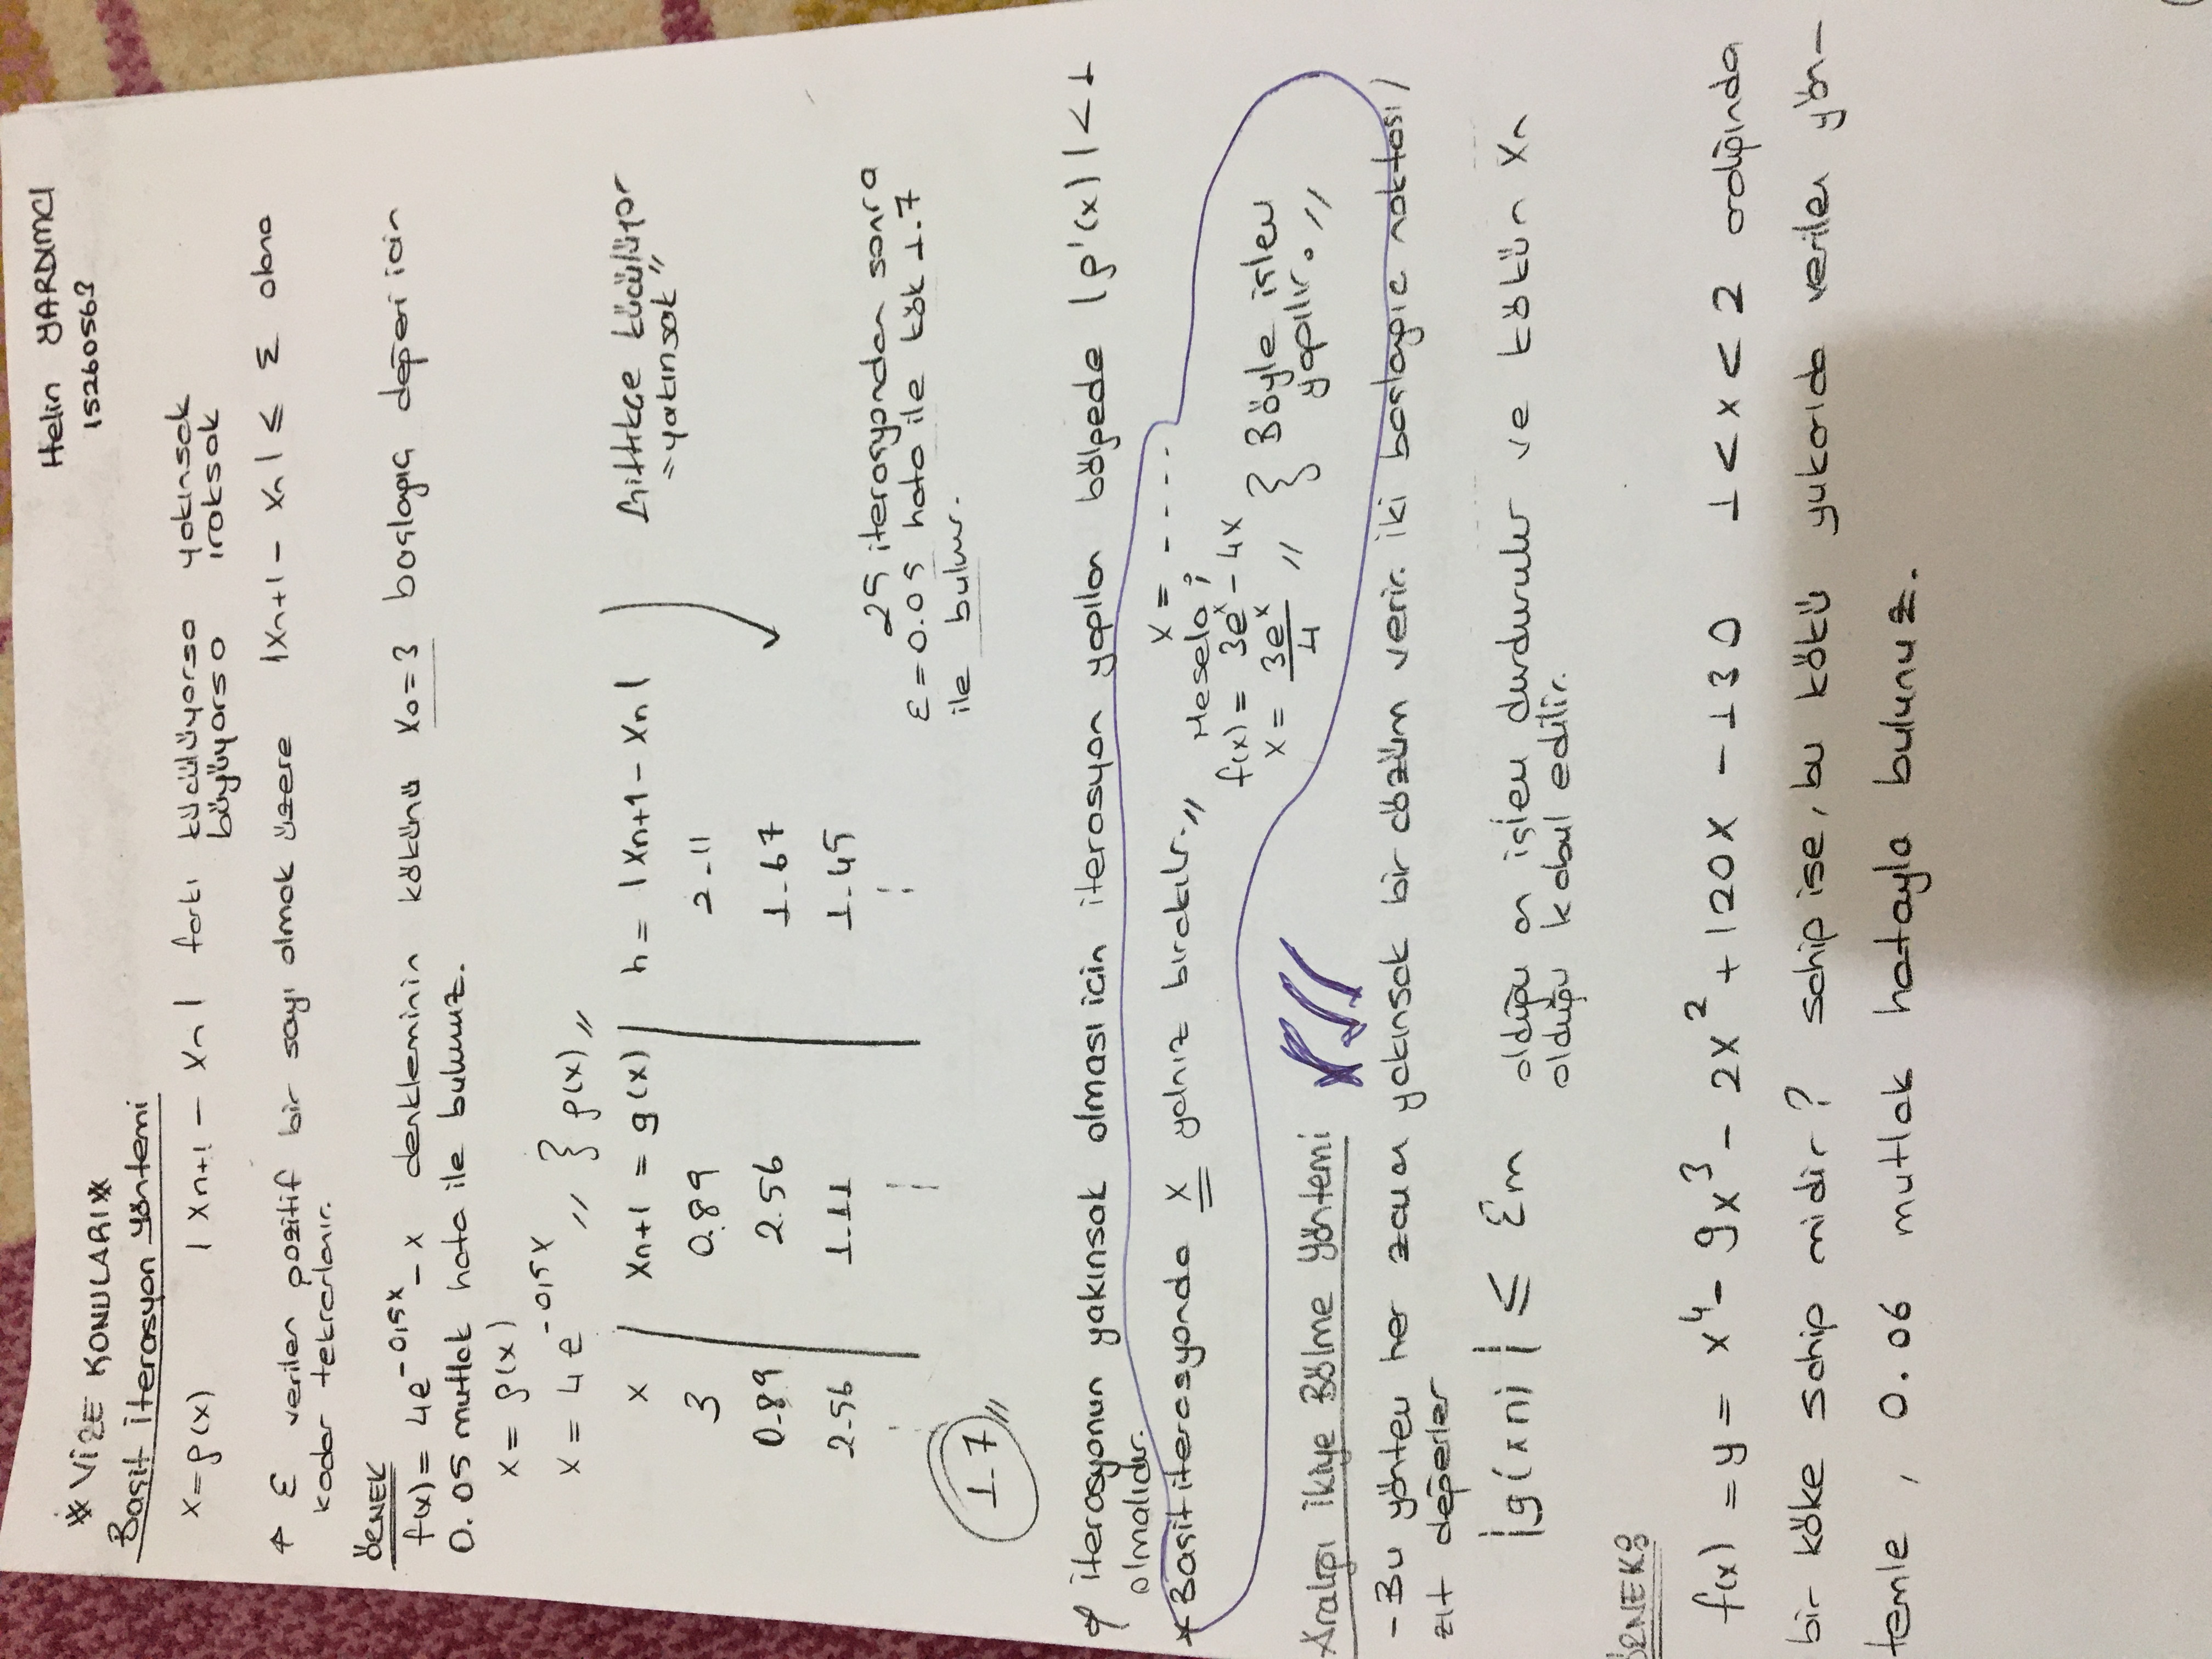 Helin YARDIMCI
15260563
* VİZE KONULARI *
Basit İterasyon Yöntemi
x = g(x) | Xn+1 - Xn | farkı küçülüyorsa yakınsak
büyüyorsa ıraksak
* ε verilen pozitif bir sayı olmak üzere |Xn+1 - Xn| ≤ Σ olana
kadar tekrarlanır.
ÖRNEK
f(x) = 4e^-0,5x - x denkleminin kökünü x0 = 3 başlangıç değeri için
0.05 mutlak hata ile bulunuz.
x = g(x)
x = 4e^-0,5x // } g(x) //
x | Xn+1 = g(x) | h = |Xn+1 - Xn|
Gittikçe küçülüyor
"yakınsak"
3 | 0.89 | 2.11
0.89 | 2.56 | 1.67
2.56 | 1.11 | 1.45
25 iterasyondan sonra
ε = 0.05 hata ile kök 1.7
ile bulunur.
1.7 //
* İterasyonun yakınsak olması için iterasyon yapılan bölgede |g'(x)| < 1
olmalıdır.
* Basit iterasyonda x yalnız bırakılır. // x = - - - -
Mesela ;
f(x) = 3e^x - 4x
x = 3e^x / 4 // } Böyle işlem
yapılır. //
Aralığı İkiye Bölme Yöntemi
- Bu yöntem her zaman yakınsak bir çözüm verir. iki başlangıç noktası /
zıt değerler
|g(xn)| ≤ Em olduğu an işlem durdurulur ve kökün Xn
olduğu kabul edilir.
ÖRNEK:
f(x) = y = x^4 - 9x^3 - 2x^2 + 120x - 130 1 < x < 2 aralığında
bir köke sahip midir? sahip ise, bu kökü yukarıda verilen yön-
temle, 0.06 mutlak hatayla bulunuz.